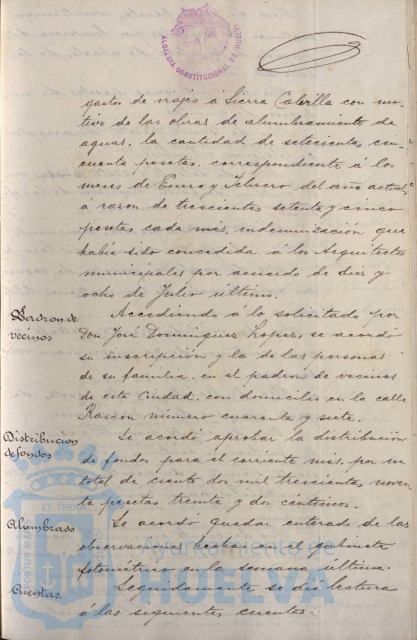 ALCALDIA CONSTITUCIONAL DE HUELVA
gastos de viajes á Sierra Calerilla con mo-
tivo de las obras de alumbramiento de
aguas, la cantidad de setecientas cin-
cuenta pesetas, correspondiente á los
meses de Enero y Febrero del año actual,
á razon de trescientas setenta y cinco
pesetas cada mes, indemnización que
había sido concedida á los Arquitectos
municipales por acuerdo de diez y
ocho de Julio último.
Padron de
vecinos
Accediendo á lo solicitado por
Don José Dominguez Lopez, se acordó
su inscripción y la de las personas
de su familia, en el padrón de vecinos
de esta Ciudad, con domicilio en la calle
Rascon número cuarenta y siete.
Distribucion
de fondos
Se acordó aprobar la distribución
de fondos para el corriente mes, por un
total de ciento dos mil trescientas noven-
ta pesetas treinta y dos céntimos.
Alumbrado
Se acordó quedar enterado de las
observaciones hechas el gabinete
fotométrico en la semana última.
Cuentas.
Seguidamente se dió lectura
á las siguientes cuentas:
Ayuntamiento de
HUELVA